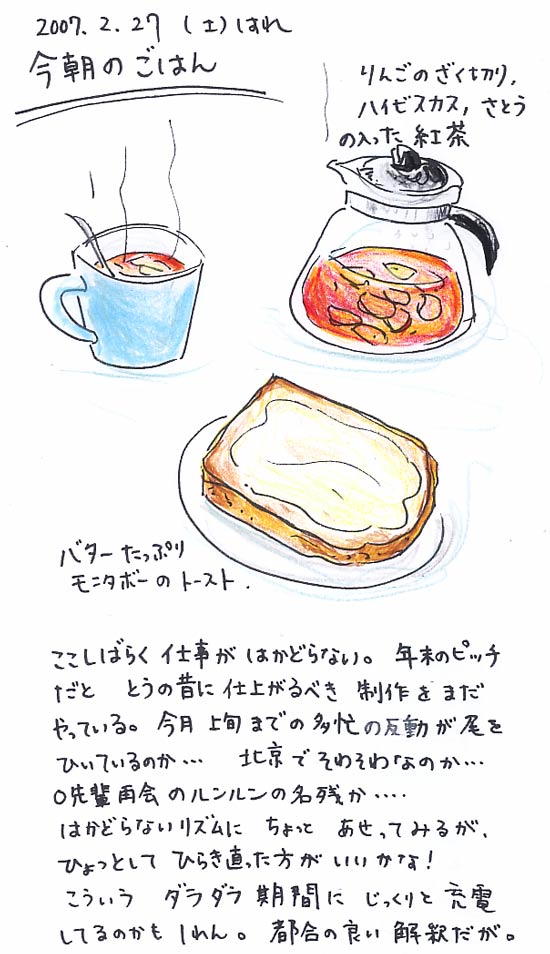 2007. 2. 27 (土) はれ
今朝のごはん
りんごのざく切り,
ハイビスカス, さとう
の入った 紅茶
バターたっぷり
モニタボーの トースト.
ここしばらく 仕事が はかどらない。 年末のピッチ
だと とうの昔に 仕上がるべき 制作を まだ
やっている。 今月 上旬までの 多忙の反動が 尾を
ひいているのか… 北京で そわそわなのか…
O先輩再会 のルンルンの名残か ‥‥
はかどらないリズムに ちょっと あせってみるが、
ひょっとして ひらき直った方が いいかな!
こういう ダラダラ 期間に じっくりと 充電
してるのかも しれん。 都合の良い 解釈だが。